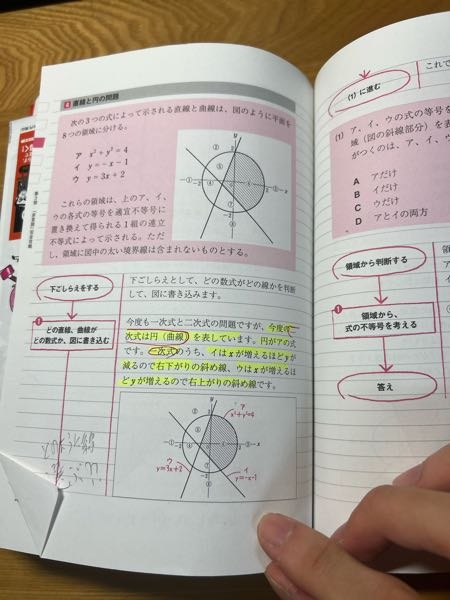 4 直線と円の問題
次の3つの式によって示される直線と曲線は、図のように平面を
8つの領域に分ける。
ア x²+y²=4
イ y=-x-1
ウ y=3x+2
これらの領域は、上のア、イ、
ウの各式の等号を適宜不等号に
置き換えて得られる1組の連立
不等式によって示される。ただ
し、領域に図中の太い境界線は含まれないものとする。
下ごしらえをする
下ごしらえとして、どの数式がどの線かを判断
して、図に書き込みます。
❶
どの直線、曲線が
どの数式か、図に書き込む
今度も一次式と二次式の問題ですが、今度の二
次式は円(曲線)を表しています。円がアの式
です。一次式のうち、イはxが増えるほどyが
減るので右下がりの斜め線、ウはxが増えるほ
どyが増えるので右上がりの斜め線です。
ア
x²+y²=4
ウ
y=3x+2
イ
y=-x-1
(1)に進む
これで
(1) ア、イ、ウの式の等号を
域(図の斜線部分)を表
がつくのは、ア、イ、
A アだけ
B イだけ
C ウだけ
D アとイの両方
領域から判断する
❶
領域から、
式の不等号を考える
答え